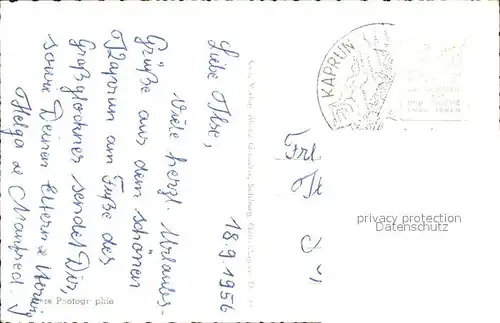 18.9.1956
Liebe Ilse,
Viele herzl. Urlaubs-
Grüße aus dem schönen
Kaprun am Fuße des
Großglockner sendet Dir,
sowie Deinen Eltern &
Helga & Manfred.
KAPRUN
Frl.
privacy protection
Datenschutz